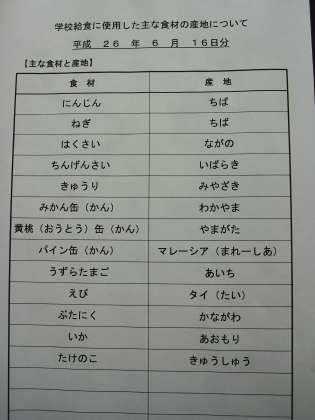 学校給食に使用した主な食材の産地について
平成 26 年 6 月 16日分
【主な食材と産地】
食 材 産 地
にんじん ちば
ねぎ ちば
はくさい ながの
ちんげんさい いばらき
きゅうり みやざき
みかん缶（かん） わかやま
黄桃（おうとう）缶（かん） やまがた
パイン缶（かん） マレーシア（まれーしあ）
うずらたまご あいち
えび タイ（たい）
ぶたにく かながわ
いか あおもり
たけのこ きゅうしゅう